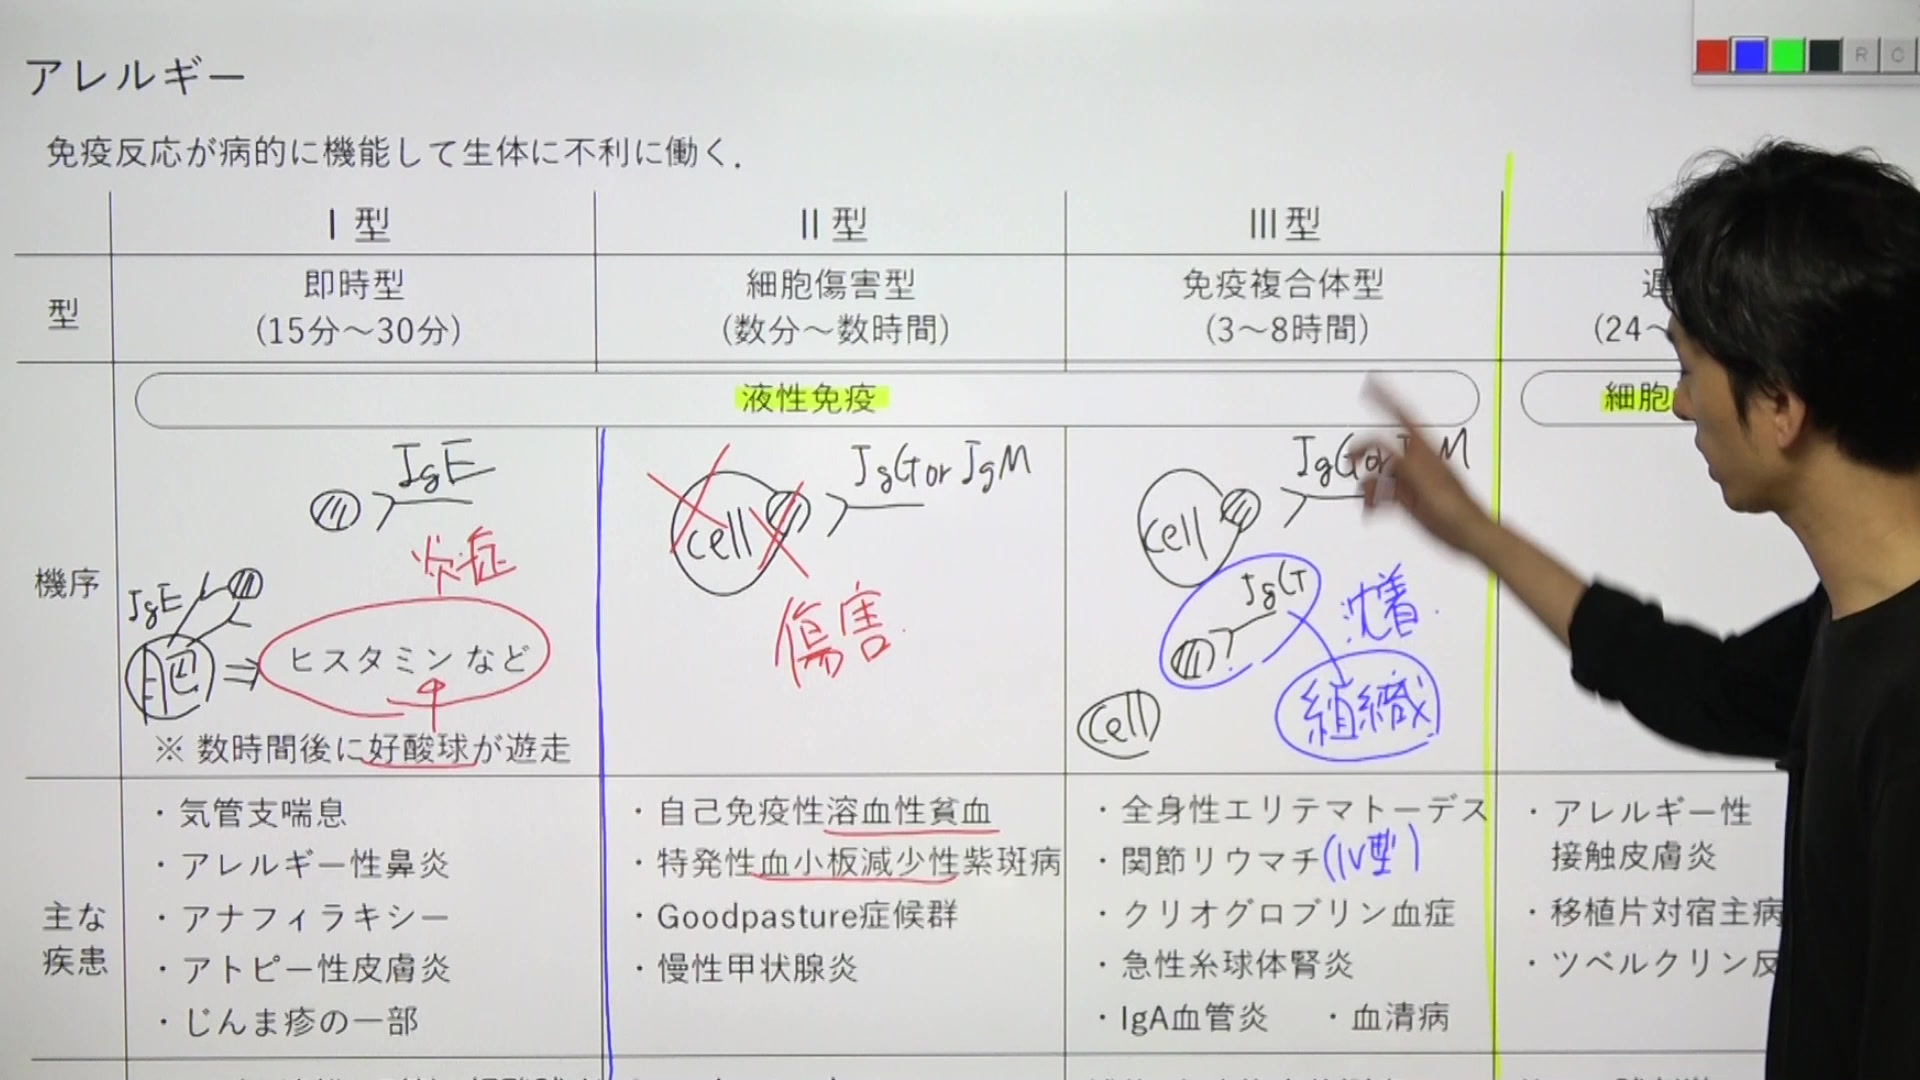 アレルギー
免疫反応が病的に機能して生体に不利に働く．
I 型
II 型
III 型
型
即時型
(15分～30分)
細胞傷害型
(数分～数時間)
免疫複合体型
(3～8時間)
遅
(24～
液性免疫
細胞
機序
IgE
炎症
IgE
肥
⇒
ヒスタミン など
※ 数時間後に好酸球が遊走
cell
IgG or IgM
傷害
cell
IgG or IgM
IgG
沈着
組織
cell
主な
疾患
・気管支喘息
・アレルギー性鼻炎
・アナフィラキシー
・アトピー性皮膚炎
・じんま疹の一部
・自己免疫性溶血性貧血
・特発性血小板減少性紫斑病
・Goodpasture症候群
・慢性甲状腺炎
・全身性エリテマトーデス
・関節リウマチ(IV型)
・クリオグロブリン血症
・急性糸球体腎炎
・IgA血管炎 ・血清病
・アレルギー性
接触皮膚炎
・移植片対宿主病
・ツベルクリン反
R
C